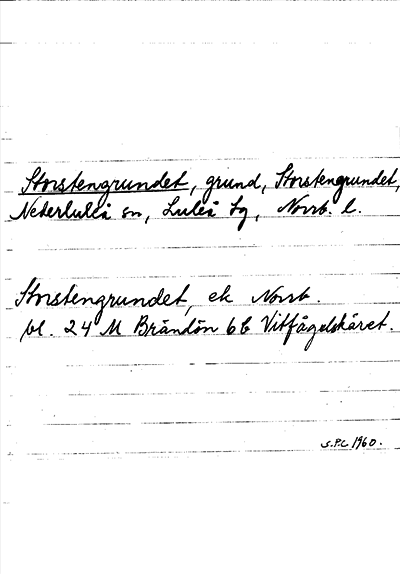 Storstengrundet, grund, Storstengrundet,
Nederluleå sn, Luleå tg, Norrb. l.
Storstengrundet, ek Norrb.
bl. 24 M Brändön 6b Vitfågelskäret.
S.P.L 1960.